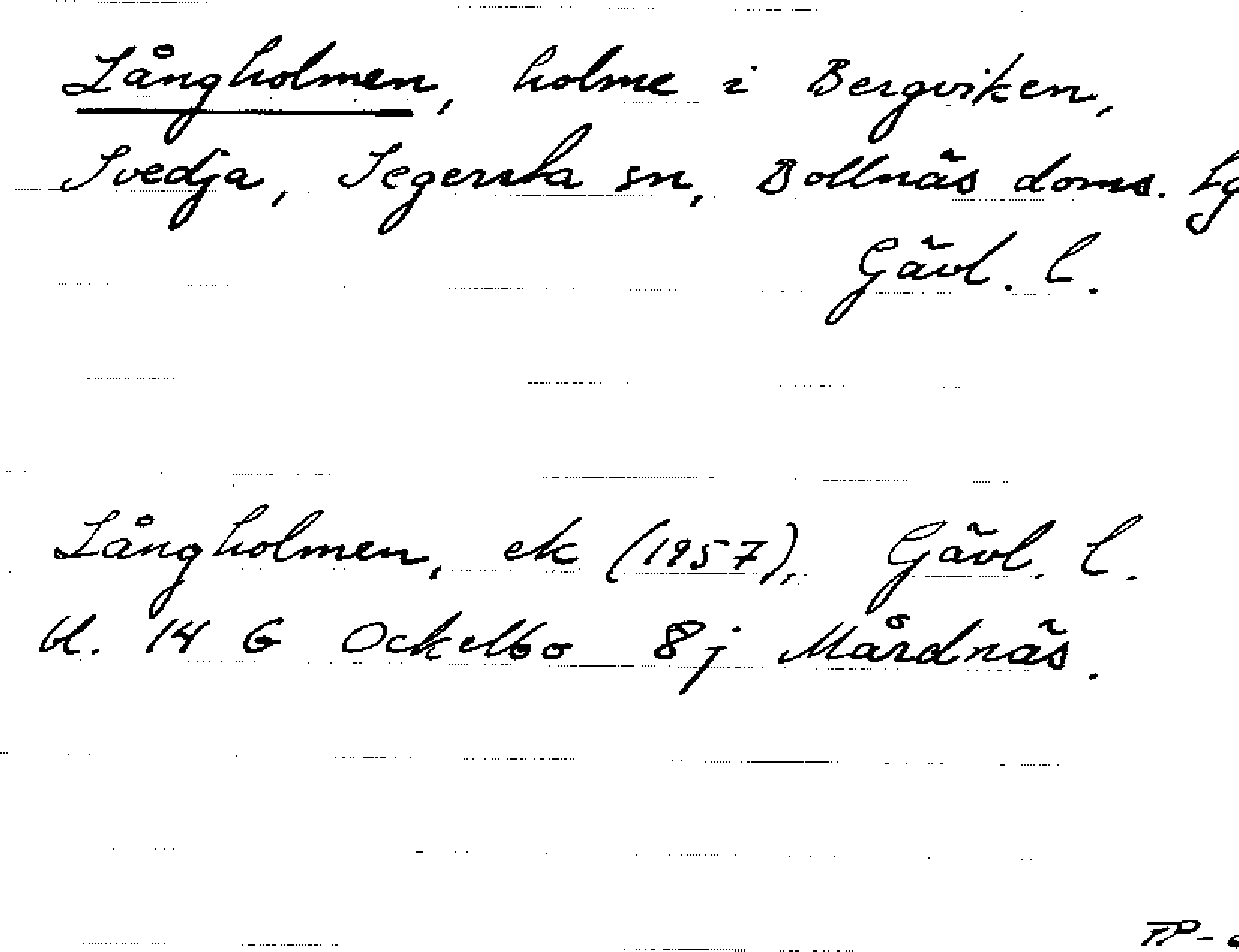 Långholmen, holme i Bergviken,
Svedja, Segersta sn, Bollnäs doms. Lg
Gävl. l.
Långholmen, ek (1957), Gävl. l.
bl. 14 G Ockelbo 8j Mårdnäs.